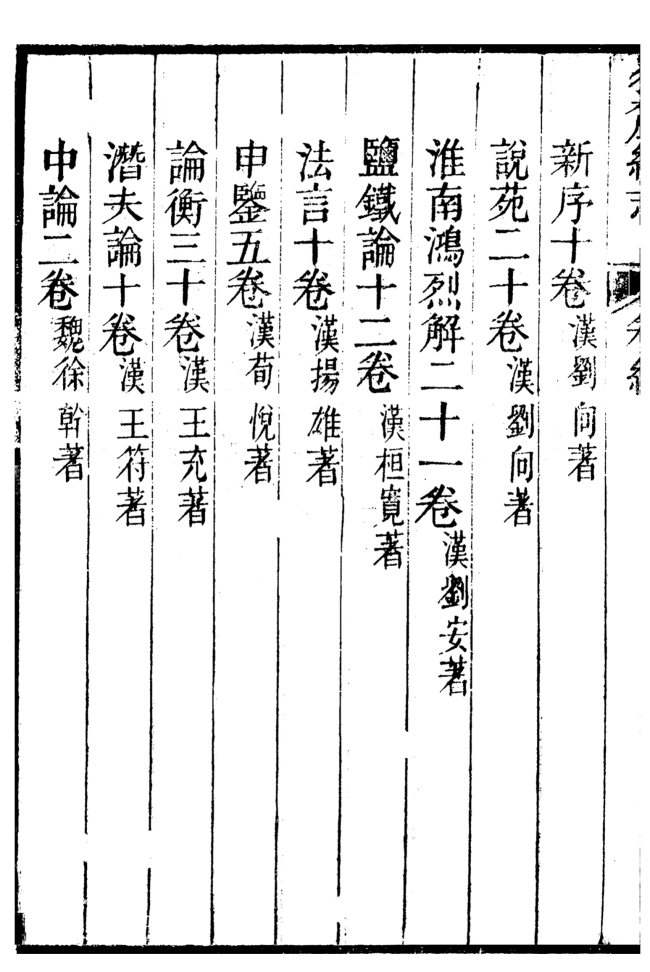 新序十卷漢劉向著
說苑二十卷漢劉向著
淮南鴻烈解二十一卷漢劉安著
鹽鐵論十二卷漢桓寬著
法言十卷漢揚雄著
申鑒五卷漢荀悅著
論衡三十卷漢王充著
潛夫論十卷漢王符著
中論二卷魏徐幹著